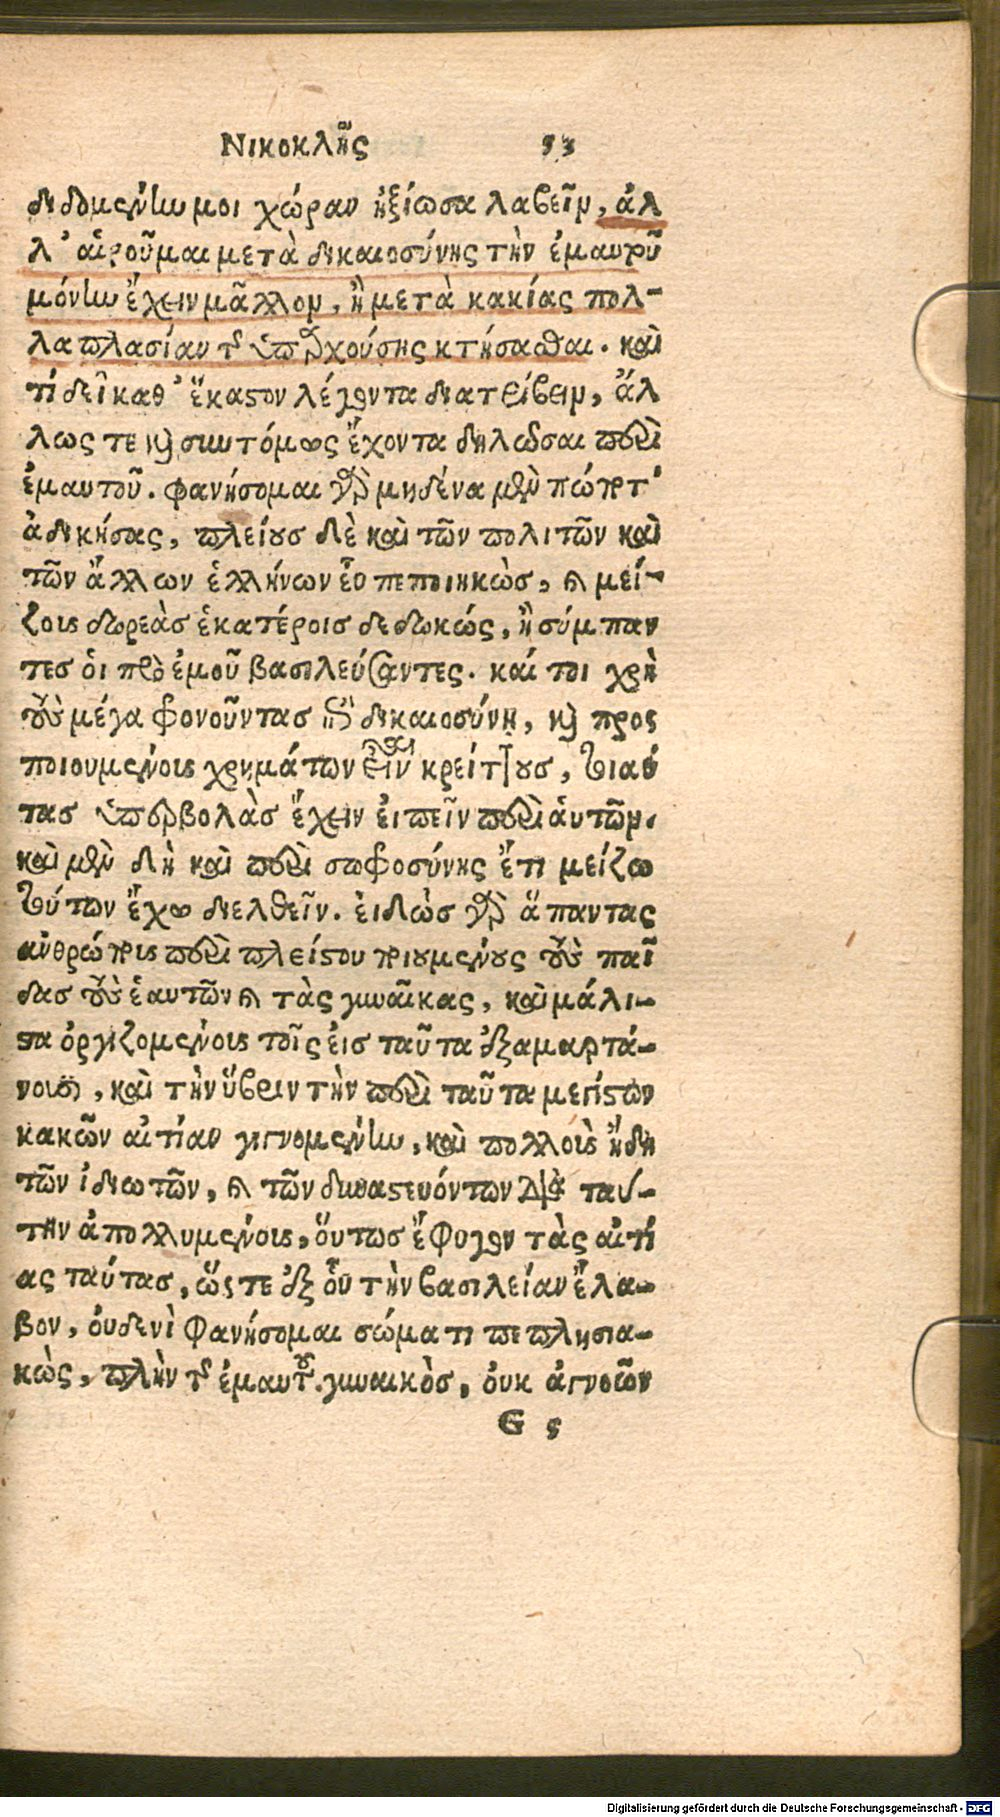 Νικοκλῆς 53
διδομένην μοι χώραν ἠξίωσα λαβεῖν, ἀλ
λ' αἱροῦμαι μετὰ δικαιοσύνης τὴν ἐμαυτοῦ
μόνην ἔχειν μᾶλλον, ἢ μετὰ κακίας πολ-
λαπλασίαν τῆς ὑπαρχούσης κτήσασθαι. καὶ
τί δεῖ καθ' ἕκαστον λέγοντα διατρίβειν, ἄλ
λως τε καὶ συντόμως ἔχοντα δηλῶσαι περὶ
ἐμαυτοῦ. φανήσομαι γὰρ μηδένα μὲν πώποτ'
ἀδικήσας, πλείους δὲ καὶ τῶν πολιτῶν καὶ
τῶν ἄλλων ἑλλήνων εὖ πεποιηκὼς, καὶ μεί-
ζους δωρεὰς ἑκατέροις δεδωκώς, ἢ σύμπαν
τες ὁι πρὸ ἐμοῦ βασιλεύσαντες. καί τοι χρὴ
τοὺς μέγα φρονοῦντας ἐπὶ δικαιοσύνῃ, καὶ προς
ποιουμένους χρημάτων εἶναι κρείττους, τοιαύ
τας ὑπερβολὰς ἔχειν ἐιπεῖν περὶ ἁυτῶν.
καὶ μὲν δὴ καὶ περὶ σωφροσύνης ἔτι μείζω
τούτων ἔχω διελθεῖν. ἐιδὼς γὰρ ἅπαντας
ἀνθρώπους περὶ πλείστου ποιουμένους τοὺς παῖ
δας τοὺς ἑαυτῶν καὶ τὰς γυναῖκας, καὶ μάλι-
στα ὀργιζομένους τοῖς ἐις ταῦτα ἐξαμαρτά-
νουσι, καὶ τὴν ὕβριν τὴν περὶ ταῦτα μεγίστων
κακῶν αἰτίαν γιγνομένην, καὶ πολλοὺς ἤδη
τῶν ἰδιωτῶν, καὶ τῶν δυναστευόντων διὰ ταύ-
την ἀπολλυμένους, ὅυτως ἔφυγον τὰς αἰτί
ας ταύτας, ὥστε ἐξ ὅυ τὴν βασιλείαν ἔλα-
βον, ὀυδενὶ φανήσομαι σώματι πεπλησια-
κὼς, πλὴν τῆς ἐμαυτοῦ γυναικὸς, ὀυκ ἀγνοῶν
G 5
Digitalisierung gefördert durch die Deutsche Forschungsgemeinschaft - DFG